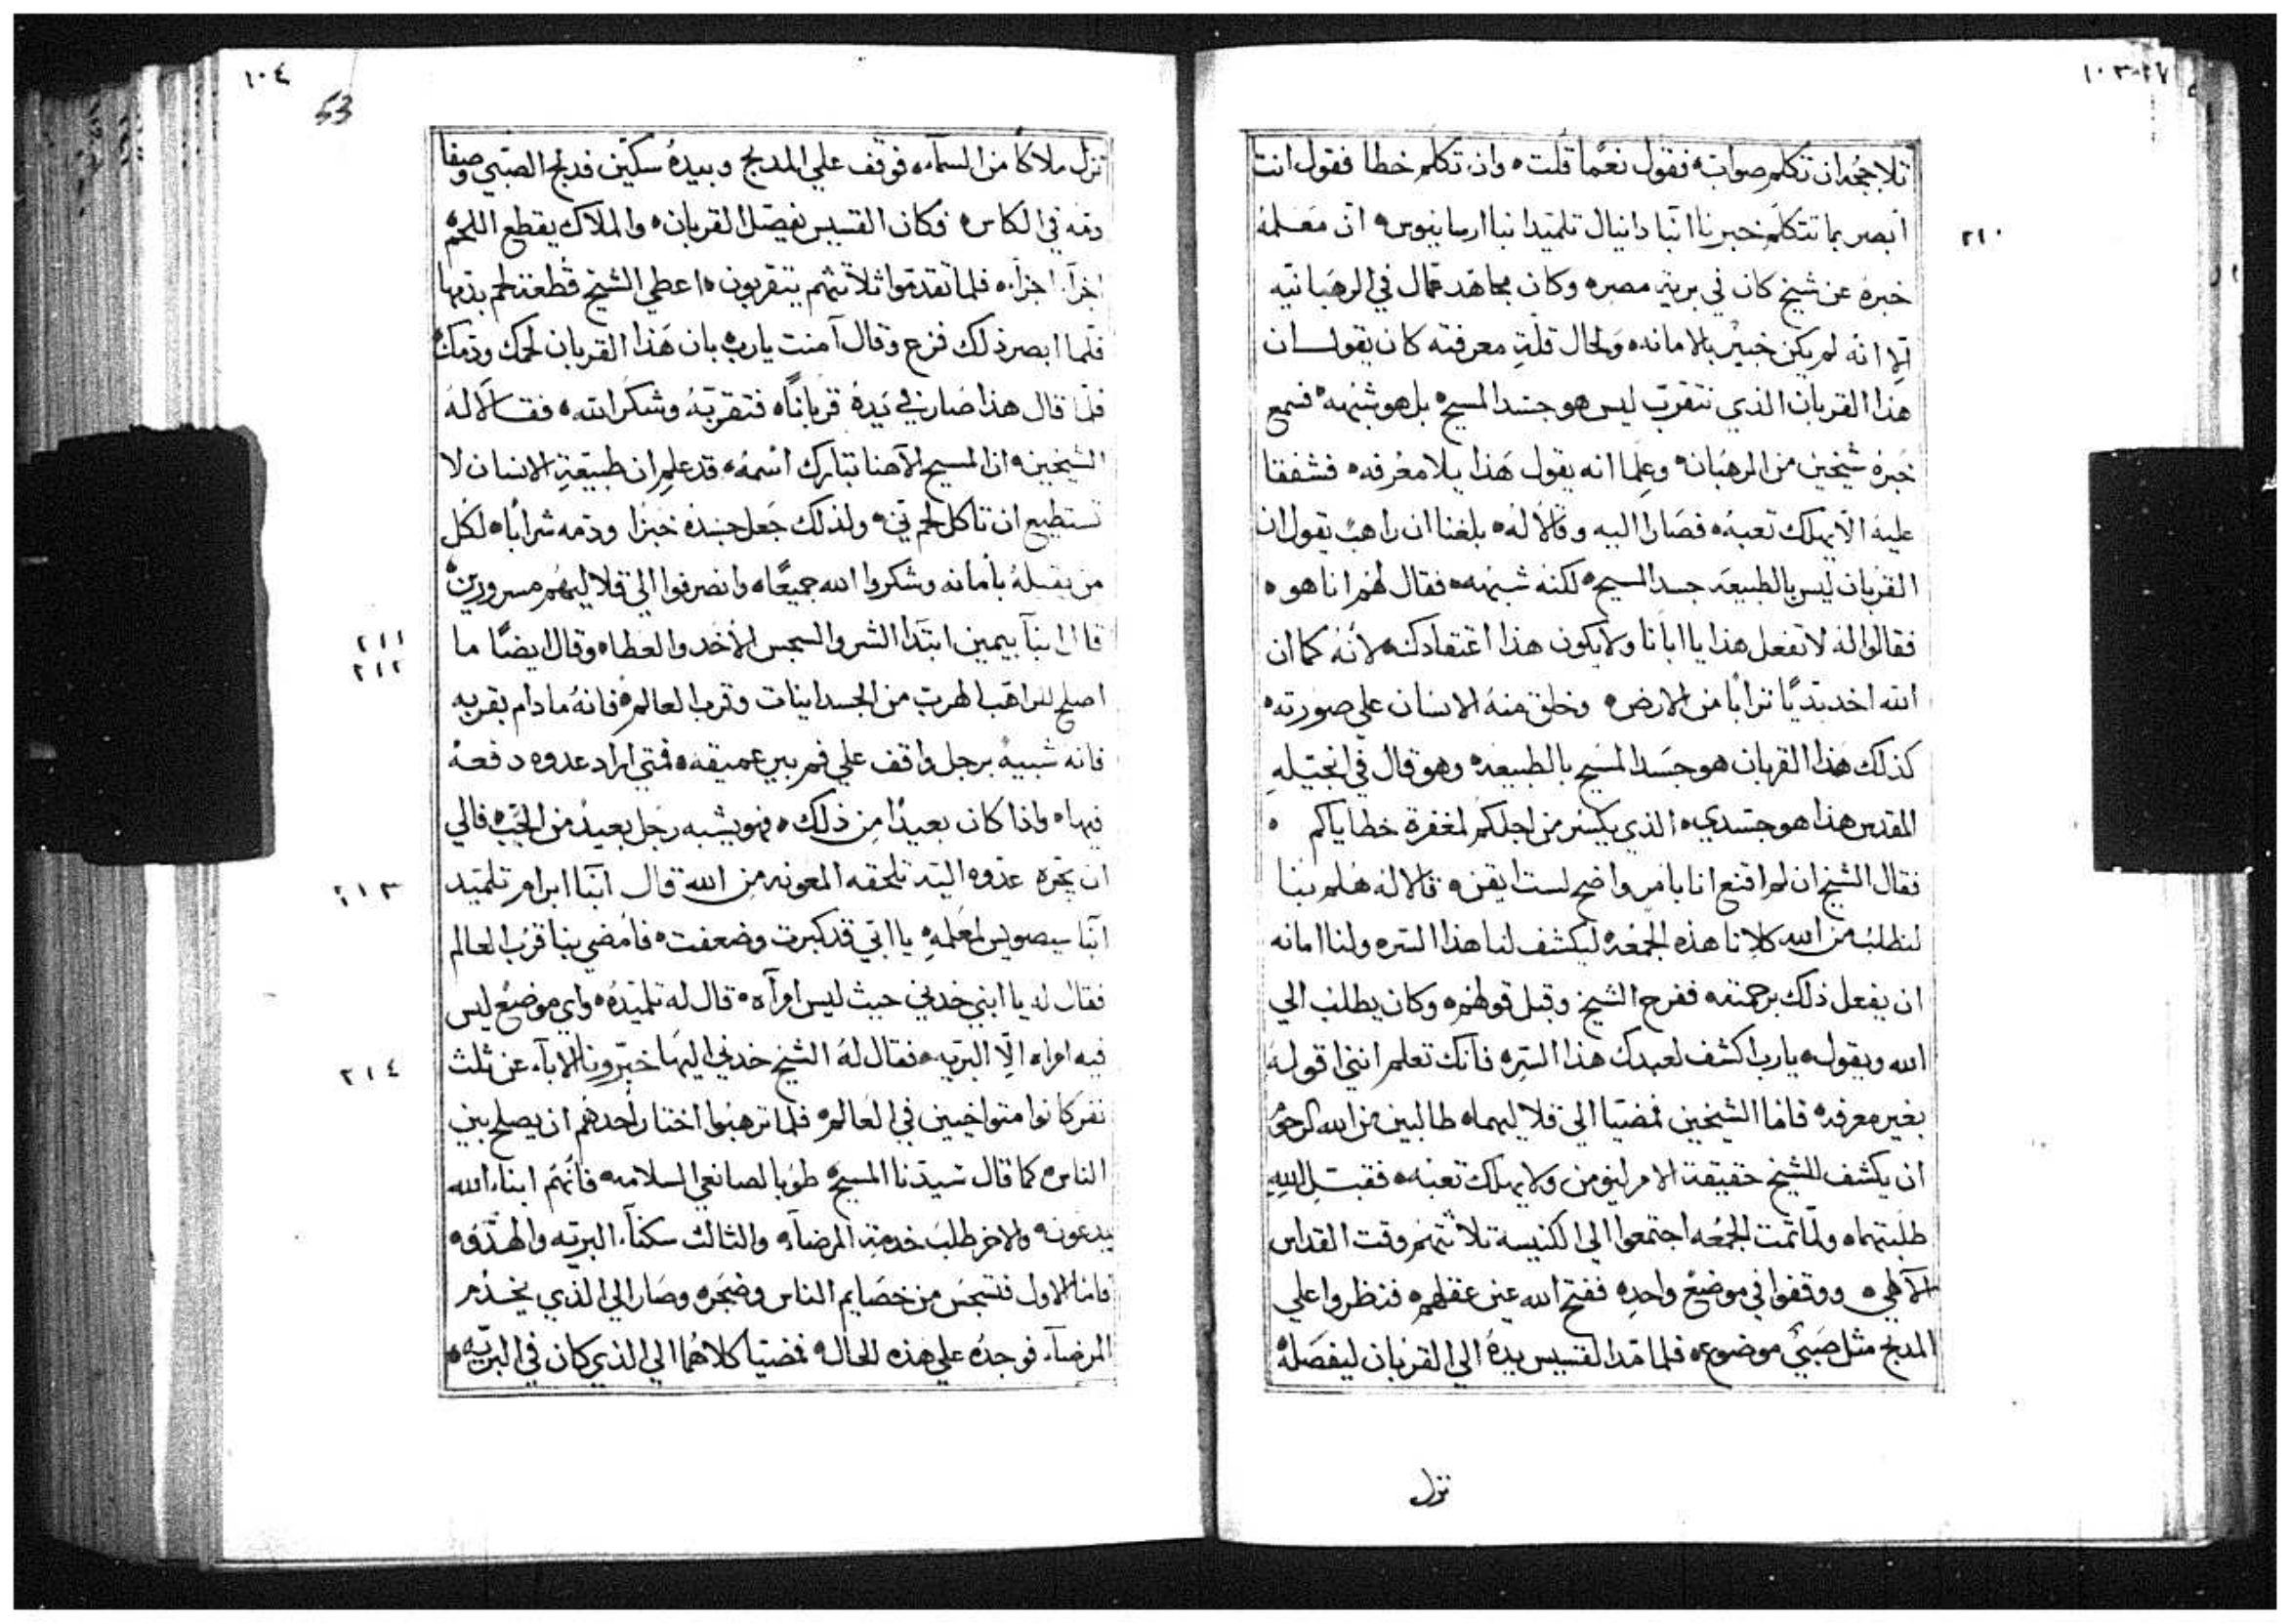 ١٠٣
تلاججه ان تكلم صواب ه فقول نعما قلت ه وان تكلم خطا فقول انت
ابصر بما تتكلم خبرنا انبا دانيال تلميد انبا ارسانيوس ه ان معلمه
٢١٠
خبره عن شيخ كان في برية مصر ه وكان مجاهد عمال في الرهبانيه
الا انه لم يكن خبير بالامانه ه ولحال قلة معرفته كان يقول ان
هذا القربان الذي نتقرب ليس هو جسد المسيح ه بل هو شبهه ه فسمع
خبره شيخين من الرهبان ه وعلما انه يقول هذا بلا معرفه ه فشفقا
عليه الا يهلك تعبه ه فصارا اليه وقالا له ه بلغنا ان راهب يقول ان
القربان ليس بالطبيعه جسد المسيح ه لكنه شبهه ه فقال لهم انا هو ه
فقالوا له لا تفعل هذا يا ابانا ولا يكون هذا اعتقادك ه لانه كما ان
الله اخد بديا ترابا من الارض ه وخلق منه الانسان علي صورته ه
كذلك هذا القربان هو جسد المسيح بالطبيعه ه وهو قال في انجيله
المقدس هذا هو جسدي ه الذي يكسر من اجلكم لمغفرة خطاياكم ه
فقال الشيخ ان لم اقنع انا بامر واضح لست ايقن ه قالا له هلم بنا
لنطلب من الله كلانا هذه الجمعه ليكشف لنا هذا السر ه ولنا امانه
ان يفعل ذلك برحمته ففرح الشيخ وقبل قولهم ه وكان يطلب الي
الله ويقول ه يارب اكشف لعبدك هذا السر ه فانك تعلم انني اقوله
بغير معرفه ه فاما الشيخين فمضيا الي قلاليهما ه طالبين من الله
ان يكشف للشيخ حقيقة الامر ليومن ولا يهلك تعبه ه فقبل الله
طلبتهما ه ولما تمت الجمعه اجتمعوا الي الكنيسة تلاتتهم وقت القداس
الالهي ه ووقفوا في موضع واحد ه ففتح الله عين عقلهم ه فنظروا علي
المدبح مثل صبي موضوع ه فلما مد القسيس يده الي القربان ليفصله
نزل
١٠٤
53
نزل ملاكا من السماء ه فوقف علي المدبح وبيده سكين فدبح الصبي وصفا
دمه في الكاس ه فكان القسيس يفصل القربان ه والملاك يقطع اللحم
اجزاء اجزاء ه فلما تقدموا ثلاثتهم يتقربون ه اعطي الشيخ قطعة لحم بدمها
فلما ابصر ذلك فزع وقال آمنت يارب ه بان هذا القربان لحمك ودمك
فلما قال هذا صار في يده قربانا ه فتقربه وشكر الله ه فقالا له
الشيخين ه ان المسيح الاهنا تبارك اسمه ه قد علم ان طبيعة الانسان لا
تستطيع ان تاكل لحم ني ه ولذلك جعل جسده خبزا ودمه شرابا ه لكل
من يقبله بامانه وشكروا الله جميعا ه وانصرفوا الي قلاليهم مسرورين ه
٢١١
قال انبا بيمين ابتدا الشر والسجس الاخد والعطا ه وقال ايضا ما
٢١٢
اصلح للراهب الهرب من الجسدانيات وقرب العالم ه فانه ما دام بقربه
فانه شبيه برجل واقف علي فم بير عميقه ه فمتي اراد عدوه دفعه
فيها ه واذا كان بعيدا من ذلك ه فهو يشبه رجل بعيد من الجب ه فالي
ان يجره عدوه اليه تلحقه المعونه من الله قال انبا ابرام تلميد
٢١٣
انبا سيصويس لمعلمه يا ابي قد كبرت وضعفت ه فامضي بنا قرب العالم
فقال له يا ابني خدني حيث ليس امراه ه قال له تلميده ه واي موضع ليس
فيه امراه الا البريه ه فقال له الشيخ خدني اليها خبرونا الاباء عن ثلث
٢١٤
نفر كانوا متواخيين في العالم ه فلما ترهبوا اختار احدهم ان يصلح بين
الناس ه كما قال سيدنا المسيح ه طوبا لصانعي السلامه ه فانهم ابناء الله
يدعون ه والاخر طلب خدمة المرضا ه والثالث سكنا البريه والهدوه
فاما الاول فتسجس من خصايم الناس وضجر ه وصار الي الذي يخدم
المرضاء فوجده علي هذه الحال ه فمضيا كلاهما الي الذي كان في البريه ه